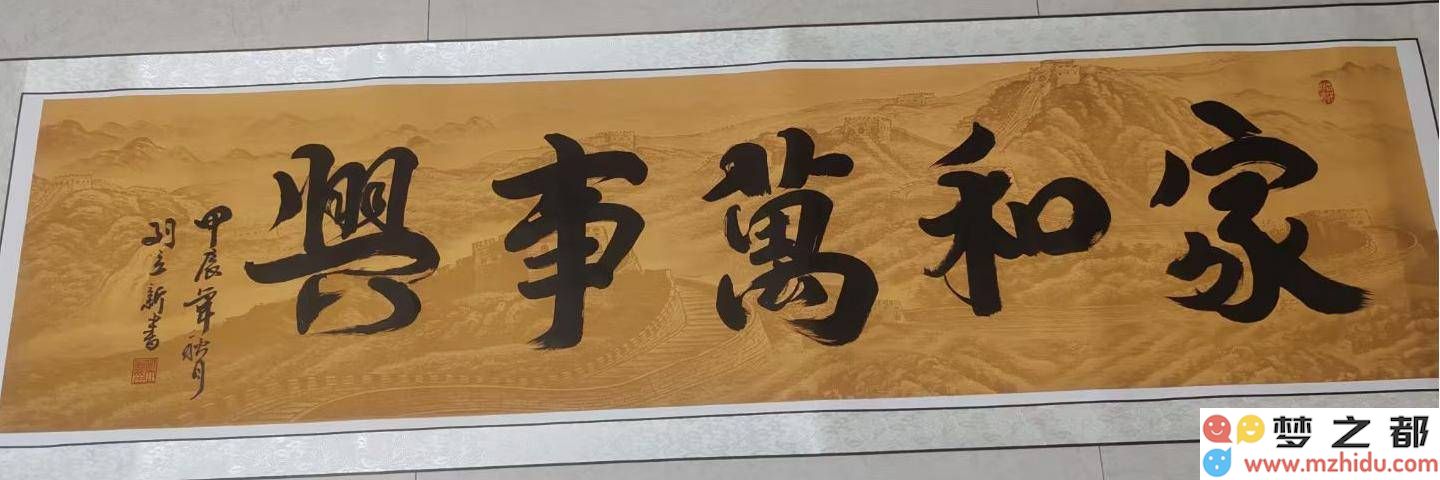 家和萬事興
甲辰年秋月
立新書
梦之都
www.mzhidu.com